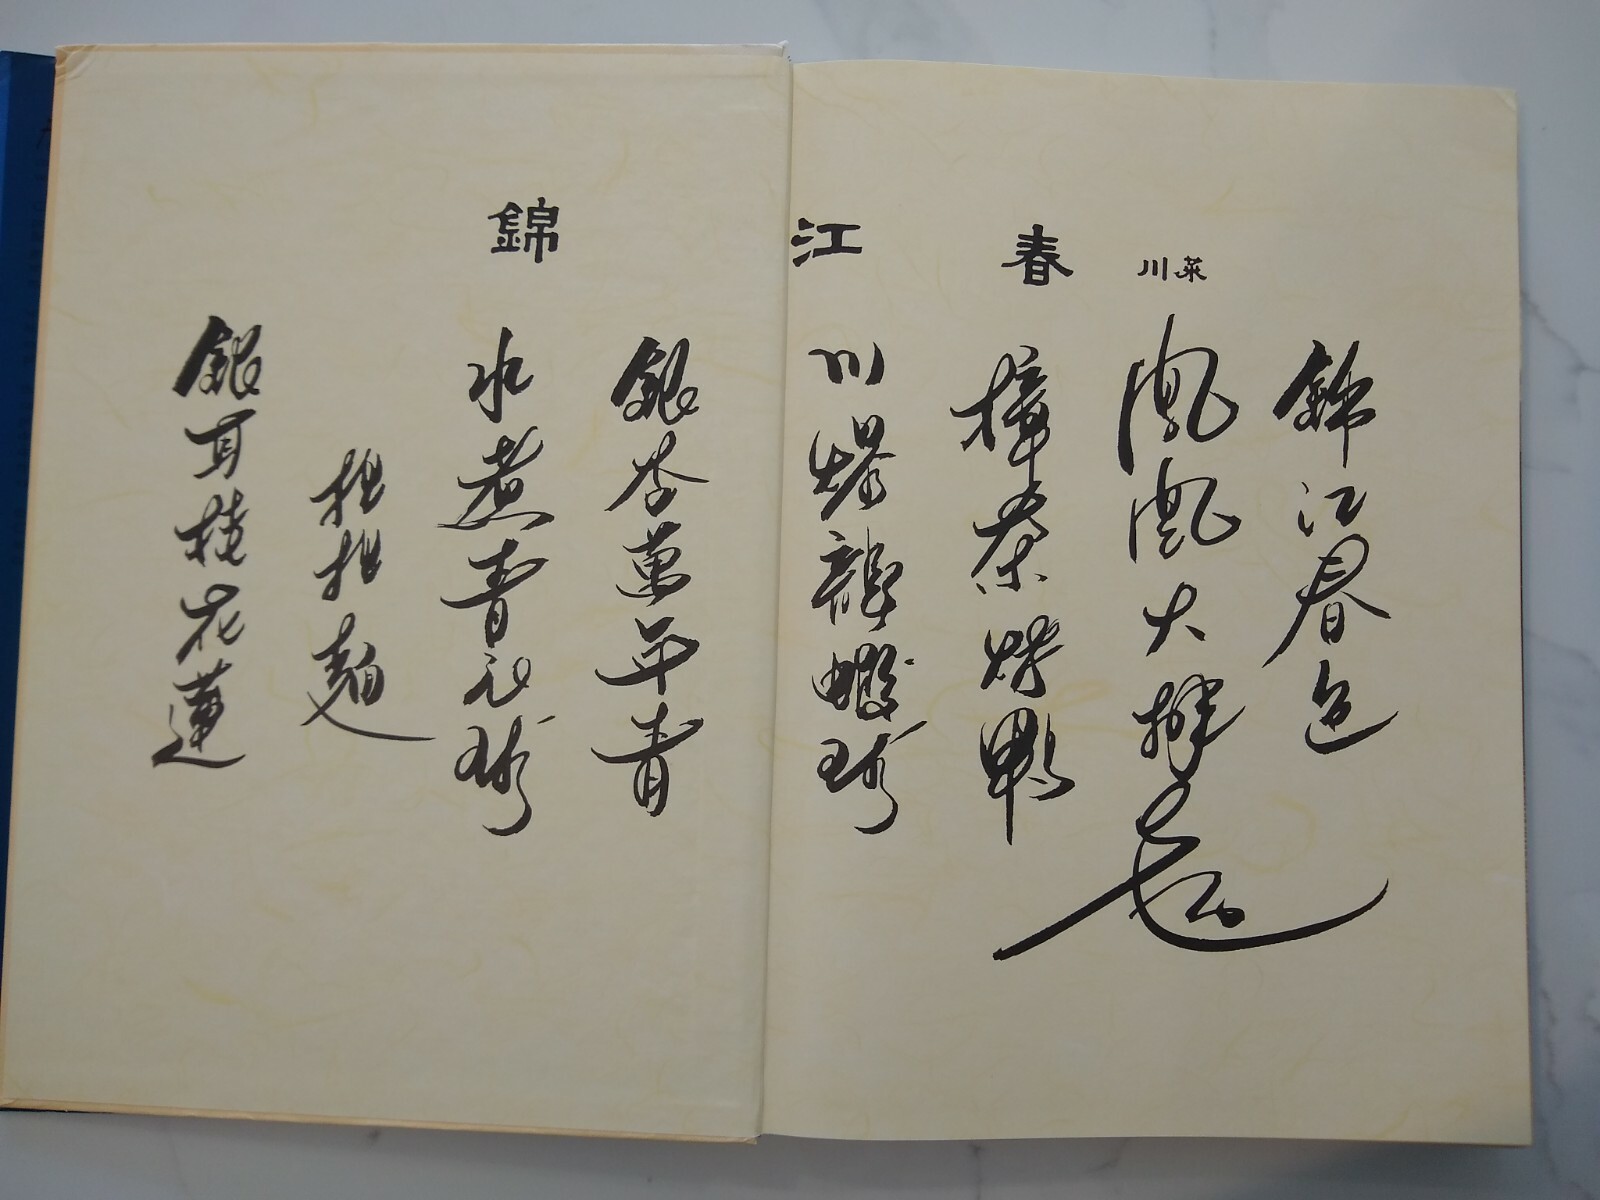 錦江春 川菜
錦江春色
鳳凰大拼
樟茶烤鴨
川爆龍蝦球
銀杏萬年青
水煮青衣球
担担麵
銀耳桂花蓮